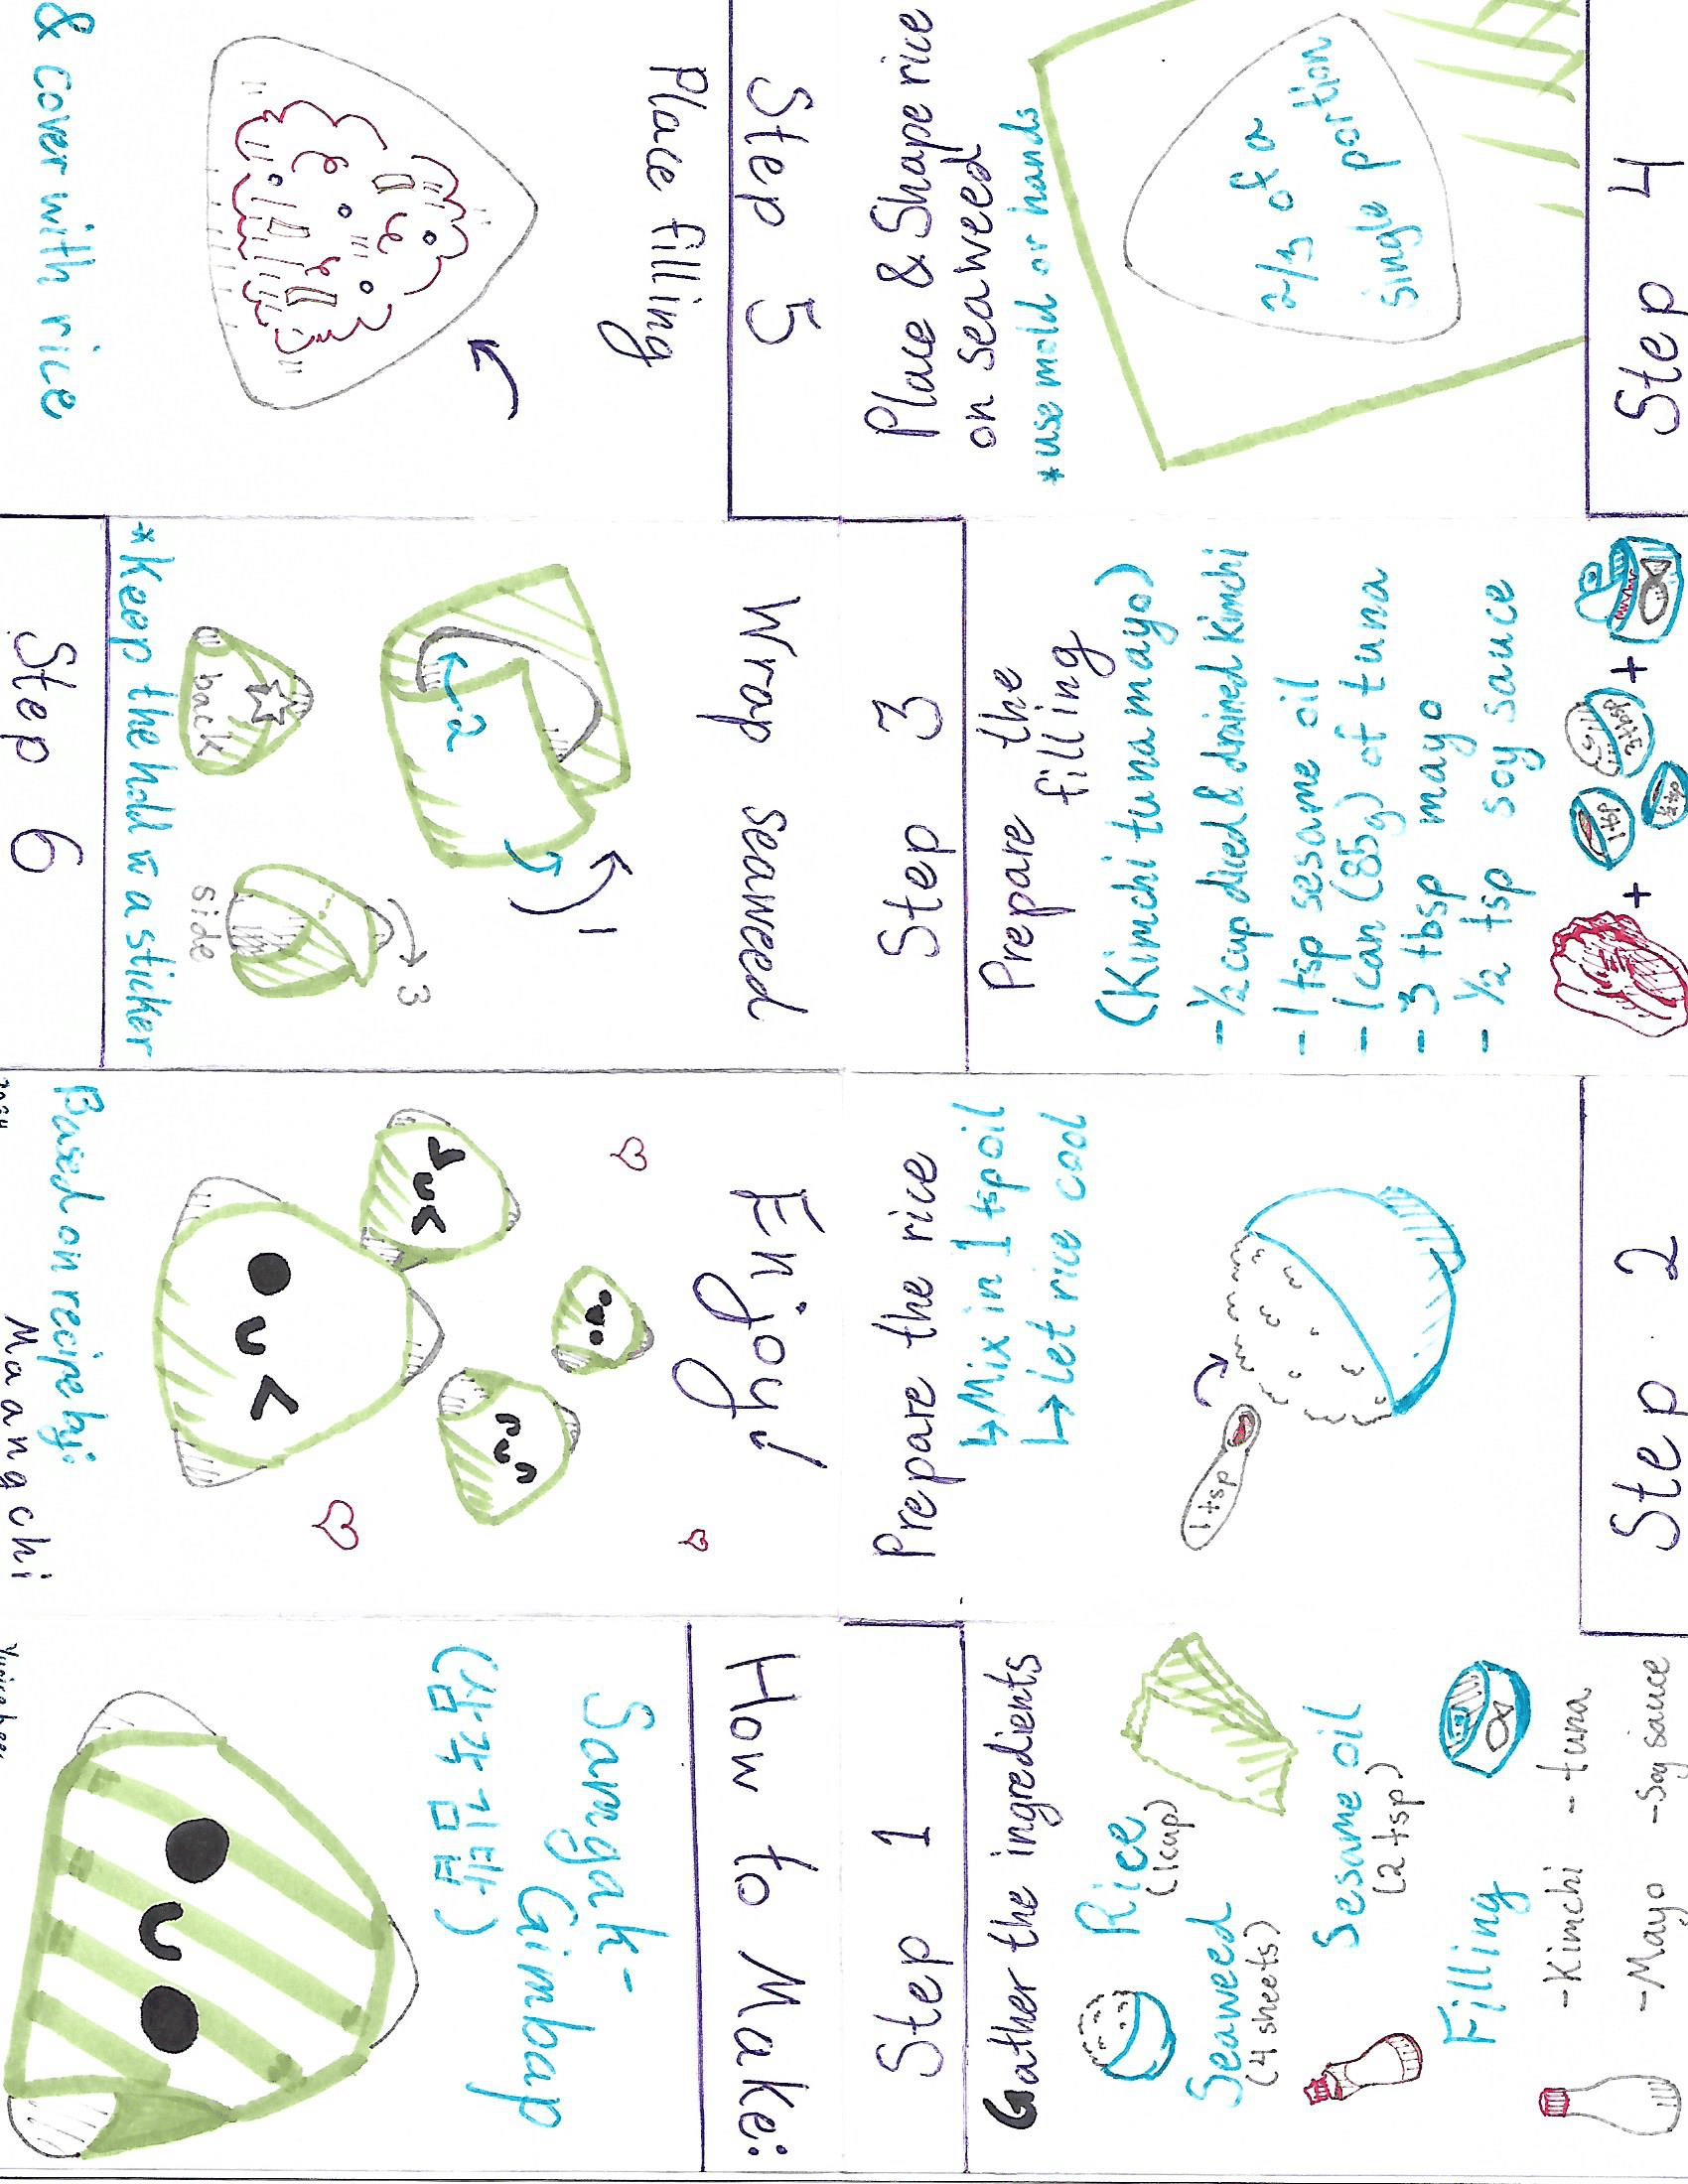 How to Make:
Samgak-
Gimbap
(삼각김밥)
Step 1
Gather the ingredients
Rice
(1cup)
Seaweed
(4 sheets)
Sesame oil
(2 tsp)
Filling
-Kimchi -tuna
-Mayo -Soy sauce
Step 2
Prepare the rice
↳Mix in 1 tsp oil
↳Let rice cool
1 tsp
Step 3
Prepare the
filling
(Kimchi tuna mayo)
- ½ cup diced & drained Kimchi
- 1 tsp sesame oil
- 1 can (85g) of tuna
- 3 tbsp mayo
- ½ tsp soy sauce
+
3 tbsp
1 tsp
½ tsp
+
Step 4
2/3 of a
single portion
Place & Shape rice
on seaweed
*use mold or hands
Step 5
Place filling
& cover with rice
Wrap seaweed
1
2
3
back
side
*Keep the hold w a sticker
Step 6
Enjoy!
Based on recipe by:
Maangchi